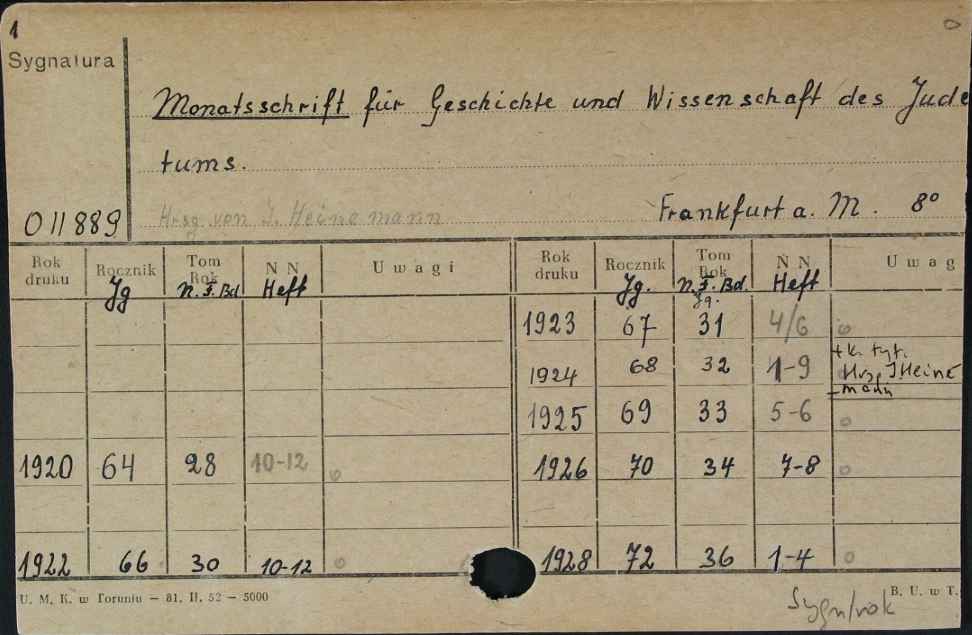 1
Sygnatura
Monatsschrift für Geschichte und Wissenschaft des Jude
tums.
011889
Hrsg. von I. Heinemann
Frankfurt a. M. 8°
Rok druku Rocznik Tom Rok N N Uwagi Rok druku Rocznik Tom Rok N N Uwag
Jg N. F. Bd Heft Jg. N. F. Bd. Heft
Jg.
1923 67 31 4/6
+ k. tyt.
1924 68 32 1-9 Hrsg. I Heine
mann
1925 69 33 5-6
1920 64 28 10-12 1926 70 34 7-8
1922 66 30 10-12 1928 72 36 1-4
U. M. K. w Toruniu — 81. II. 52 — 5000
B. U. w T.
Sygn/rok